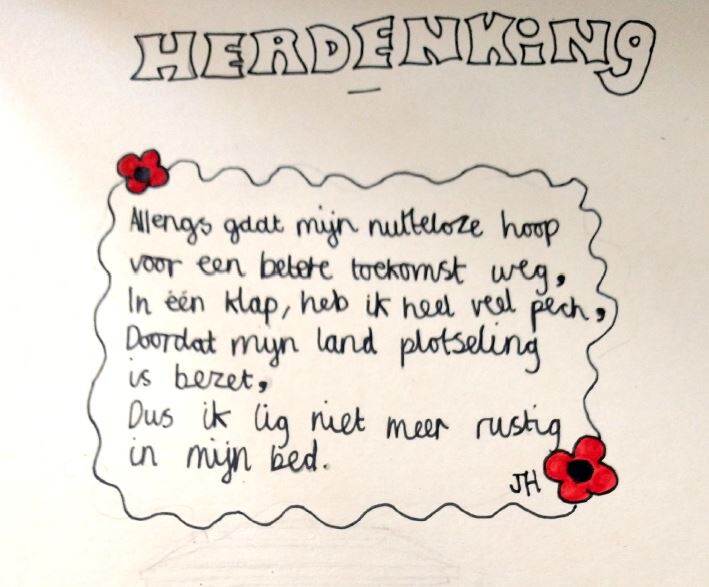 HERDENKiNg
Allengs gaat mijn nutteloze hoop
voor een betere toekomst weg,
In één klap, heb ik heel veel pech,
Doordat mijn land plotseling
is bezet,
Dus ik lig niet meer rustig
in mijn bed.
JH